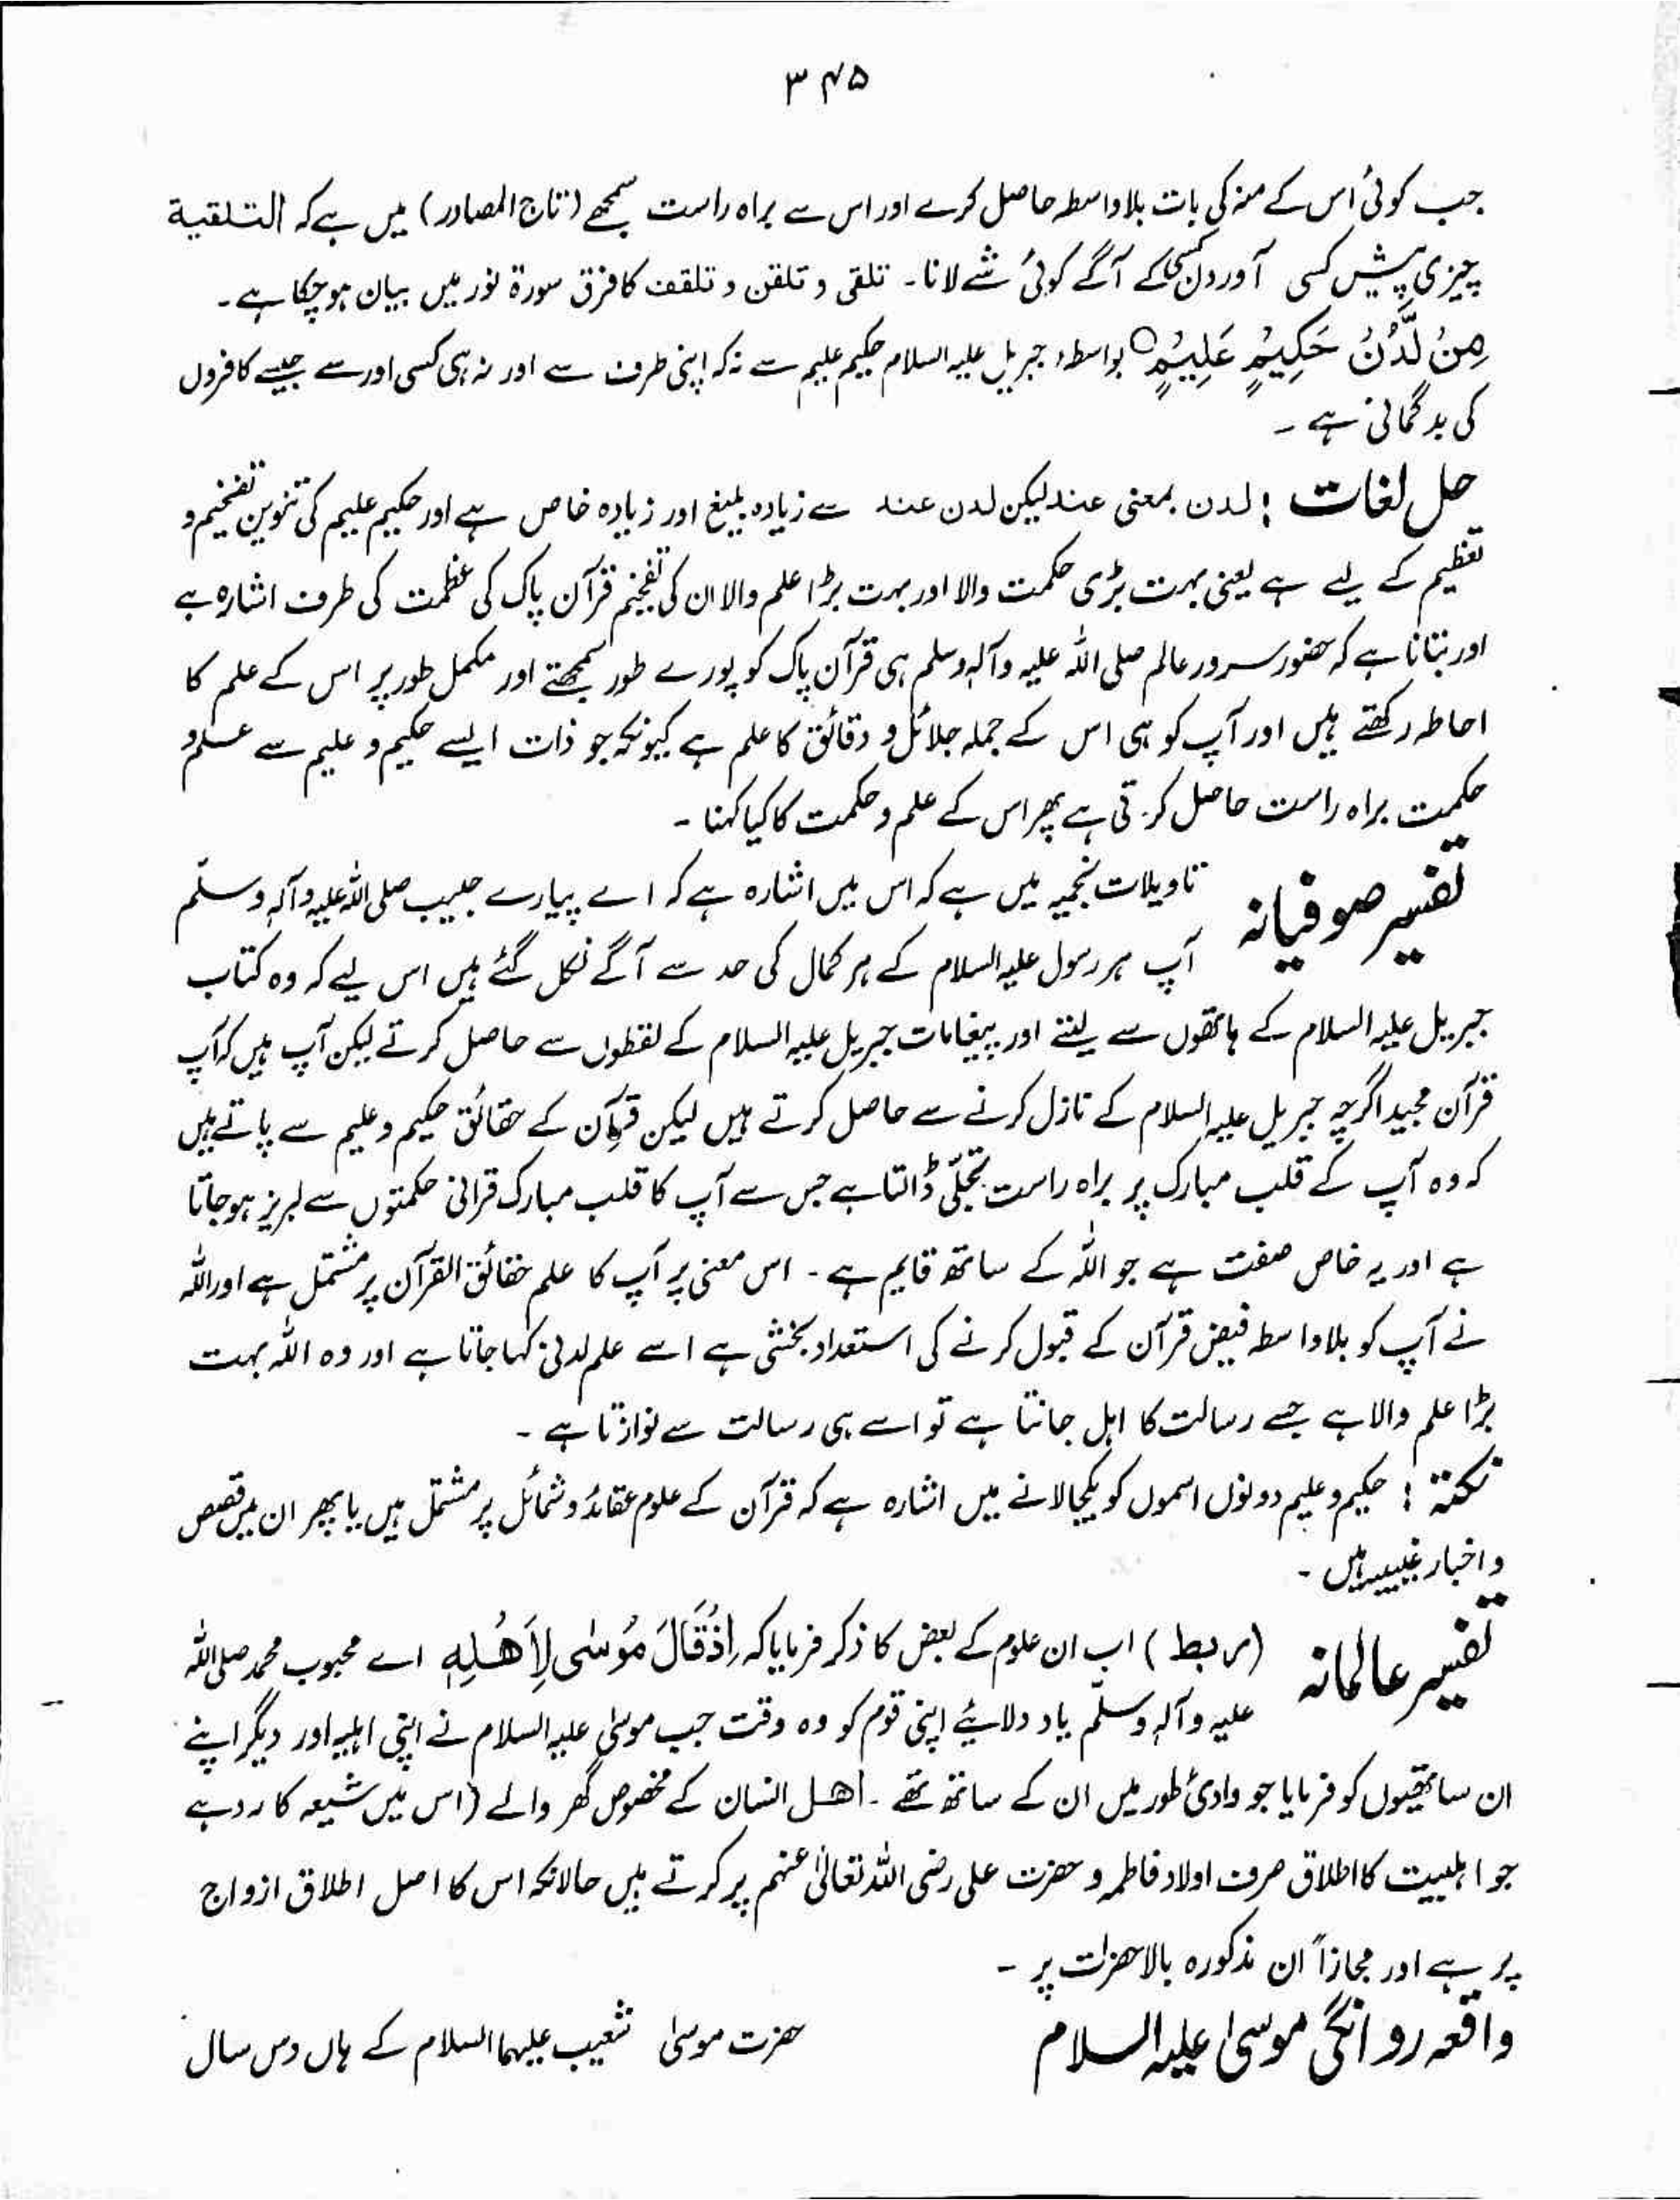 ۳۴۵
جب کوئی اس کے منہ کی بات بلاواسطہ حاصل کرے اور اس سے براہ راست سمجھے (تاج المصادر) میں ہے کہ التلقیۃ
چیزی پیش کسی آوردن کسی کے آگے کوئی شے لانا۔ تلقی و تلقن و تلقف کا فرق سورۃ نور میں بیان ہو چکا ہے۔
مِنْ لَّدُنْ حَكِیْمٍ عَلِیْمٍ○ بواسطہ جبریل علیہ السلام حکیم علیم سے نہ کہ اپنی طرف سے اور نہ ہی کسی اور سے جیسے کافروں
کی بدگمانی ہے۔
حل لغات : لدن بمعنی عند لیکن لدن عند سے زیادہ بلیغ اور زیادہ خاص ہے اور حکیم علیم کی تنوین تفخیم و
تعظیم کے لیے ہے یعنی بہت بڑی حکمت والا اور بہت بڑا علم والا ان کی تفخیم قرآن پاک کی عظمت کی طرف اشارہ ہے
اور بتانا ہے کہ حضور سرور عالم صلی اللہ علیہ وآلہٖ وسلم ہی قرآن پاک کو پورے طور سمجھتے اور مکمل طور پر اس کے علم کا
احاطہ رکھتے ہیں اور آپ کو ہی اس کے جملہ جلائل و دقائق کا علم ہے کیونکہ جو ذات ایسے حکیم و علیم سے علم و
حکمت براہ راست حاصل کرتی ہے پھر اس کے علم و حکمت کا کیا کہنا۔
تفسیر صوفیانہ تاویلات نجمیہ میں ہے کہ اس میں اشارہ ہے کہ اے پیارے حبیب صلی اللہ علیہ وآلہٖ وسلّم
آپ ہر رسول علیہ السلام کے ہر کمال کی حد سے آگے نکل گئے ہیں اس لیے کہ وہ کتاب
جبریل علیہ السلام کے ہاتھوں سے لیتے اور پیغامات جبریل علیہ السلام کے لفظوں سے حاصل کرتے لیکن آپ ہیں کہ آپ
قرآن مجید اگرچہ جبریل علیہ السلام کے نازل کرنے سے حاصل کرتے ہیں لیکن قرآن کے حقائق حکیم و علیم سے پاتے ہیں
کہ وہ آپ کے قلب مبارک پر براہ راست تجلّی ڈالتا ہے جس سے آپ کا قلب مبارک قرانی حکمتوں سے لبریز ہو جاتا
ہے اور یہ خاص صفت ہے جو اللہ کے ساتھ قایم ہے۔ اس معنی پر آپ کا علم حقائق القرآن پر مشتمل ہے اور اللہ
نے آپ کو بلاواسطہ فیض قرآن کے قبول کرنے کی استعداد بخشی ہے اسے علم لدنی کہا جاتا ہے اور وہ اللہ بہت
بڑا علم والا ہے جسے رسالت کا اہل جانتا ہے تو اسے ہی رسالت سے نوازتا ہے۔
نکتہ : حکیم و علیم دونوں اسموں کو یکجا لانے میں اشارہ ہے کہ قرآن کے علوم عقائد و شمائل پر مشتمل ہیں یا پھر ان میں قصص
و اخبار غیبیہ ہیں۔
تفسیر عالمانہ (ربط) اب ان علوم کے بعض کا ذکر فرمایا کہ اِذْ قَالَ مُوْسٰی لِاَھْلِہٖ اے محبوب محمد صلی اللہ
علیہ وآلہٖ وسلّم یاد دلائیے اپنی قوم کو وہ وقت جب موسیٰ علیہ السلام نے اپنی اہلیہ اور دیگر اپنے
ان ساتھیوں کو فرمایا جو وادیٔ طور میں ان کے ساتھ تھے۔ اھل انسان کے مخصوص گھر والے (اس میں شیعہ کا رد ہے
جو اہلبیت کا اطلاق صرف اولاد فاطمہ و حضرت علی رضی اللہ تعالیٰ عنہم پر کرتے ہیں حالانکہ اس کا اصل اطلاق ازواج
پر ہے اور مجازاً ان مذکورہ بالا حضرات پر۔
واقعہ روانگی موسیٰ علیہ السلام حضرت موسیٰ شعیب علیہما السلام کے ہاں دس سال